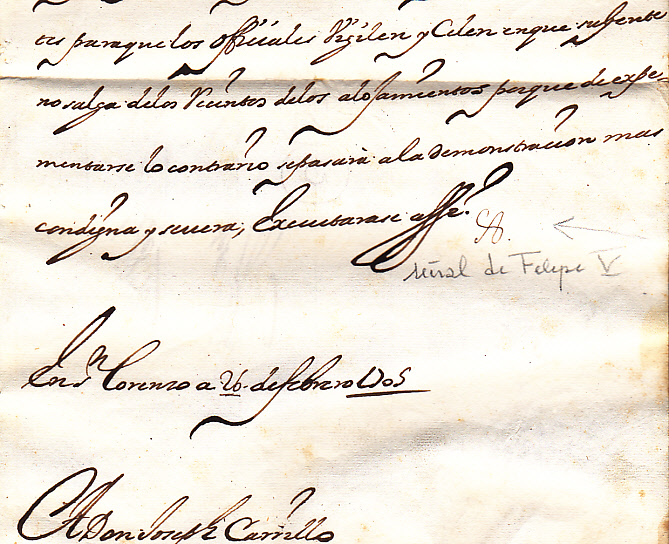 tes paraque los Offiçiales Vigilen y Celen enque su gente
no salga delos Reçintos delos alojamientos porque de expe-
mentarse lo contrario se pasará ala demonstraçion mas
condigna y severa; Executarase assi.
señal de Felipe V
En Sn Lorenzo a 26 de febrero 1705
A Don Joseph Carrillo